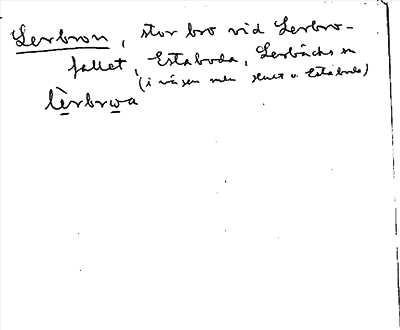 Lerbron, stor bro vid Lerbro-
fallet, Estaboda, Lerbäcks sn
(i vägen mellan o Estaboda)
lèrbrωa